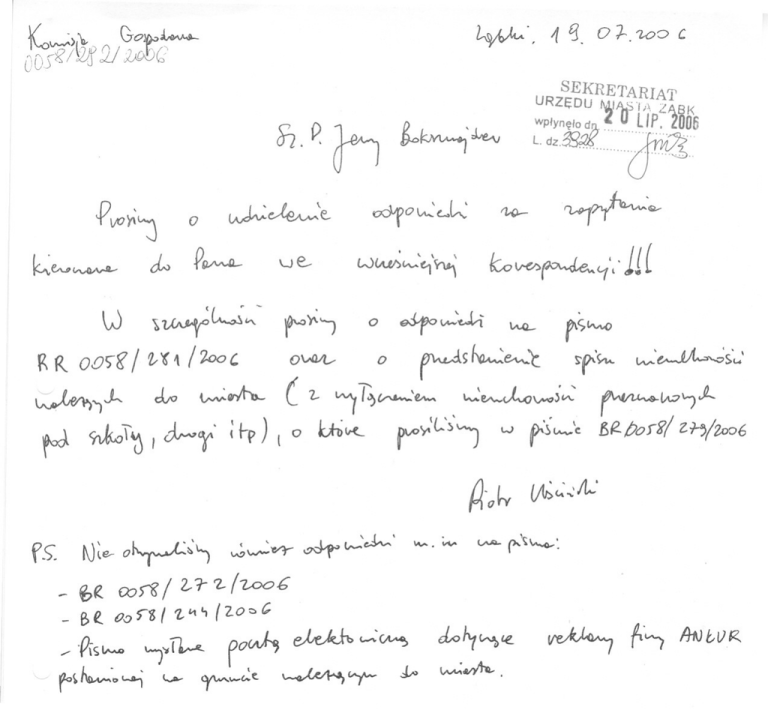 Komisja Gospodarna
0058/292/2006
Ząbki, 19.07.2006
SEKRETARIAT
URZĘDU MIASTA ZĄBK
wpłynęło dn. 20 LIP. 2006
L. dz. 3928
Sz. P. Jerzy
Prosimy o udzielenie odpowiedzi na zapytania
kierowane do Pana we wcześniejszej korespondencji!!!
W szczególności prosimy o odpowiedź na pismo
RR 0058/281/2006 oraz o przedstawienie spisu nieruchomości
należących do miasta (z wyłączeniem nieruchomości przeznaczonych
pod szkoły, drogi itp), o które prosiliśmy w piśmie BR 0058/279/2006
Piotr Uściński
P.S. Nie otrzymaliśmy również odpowiedzi m.in na pisma:
- BR 0058/272/2006
- BR 0058/244/2006
- Pismo wysłane pocztą elektroniczną dotyczące reklamy firmy
postawionej na gruncie należącym do miasta.